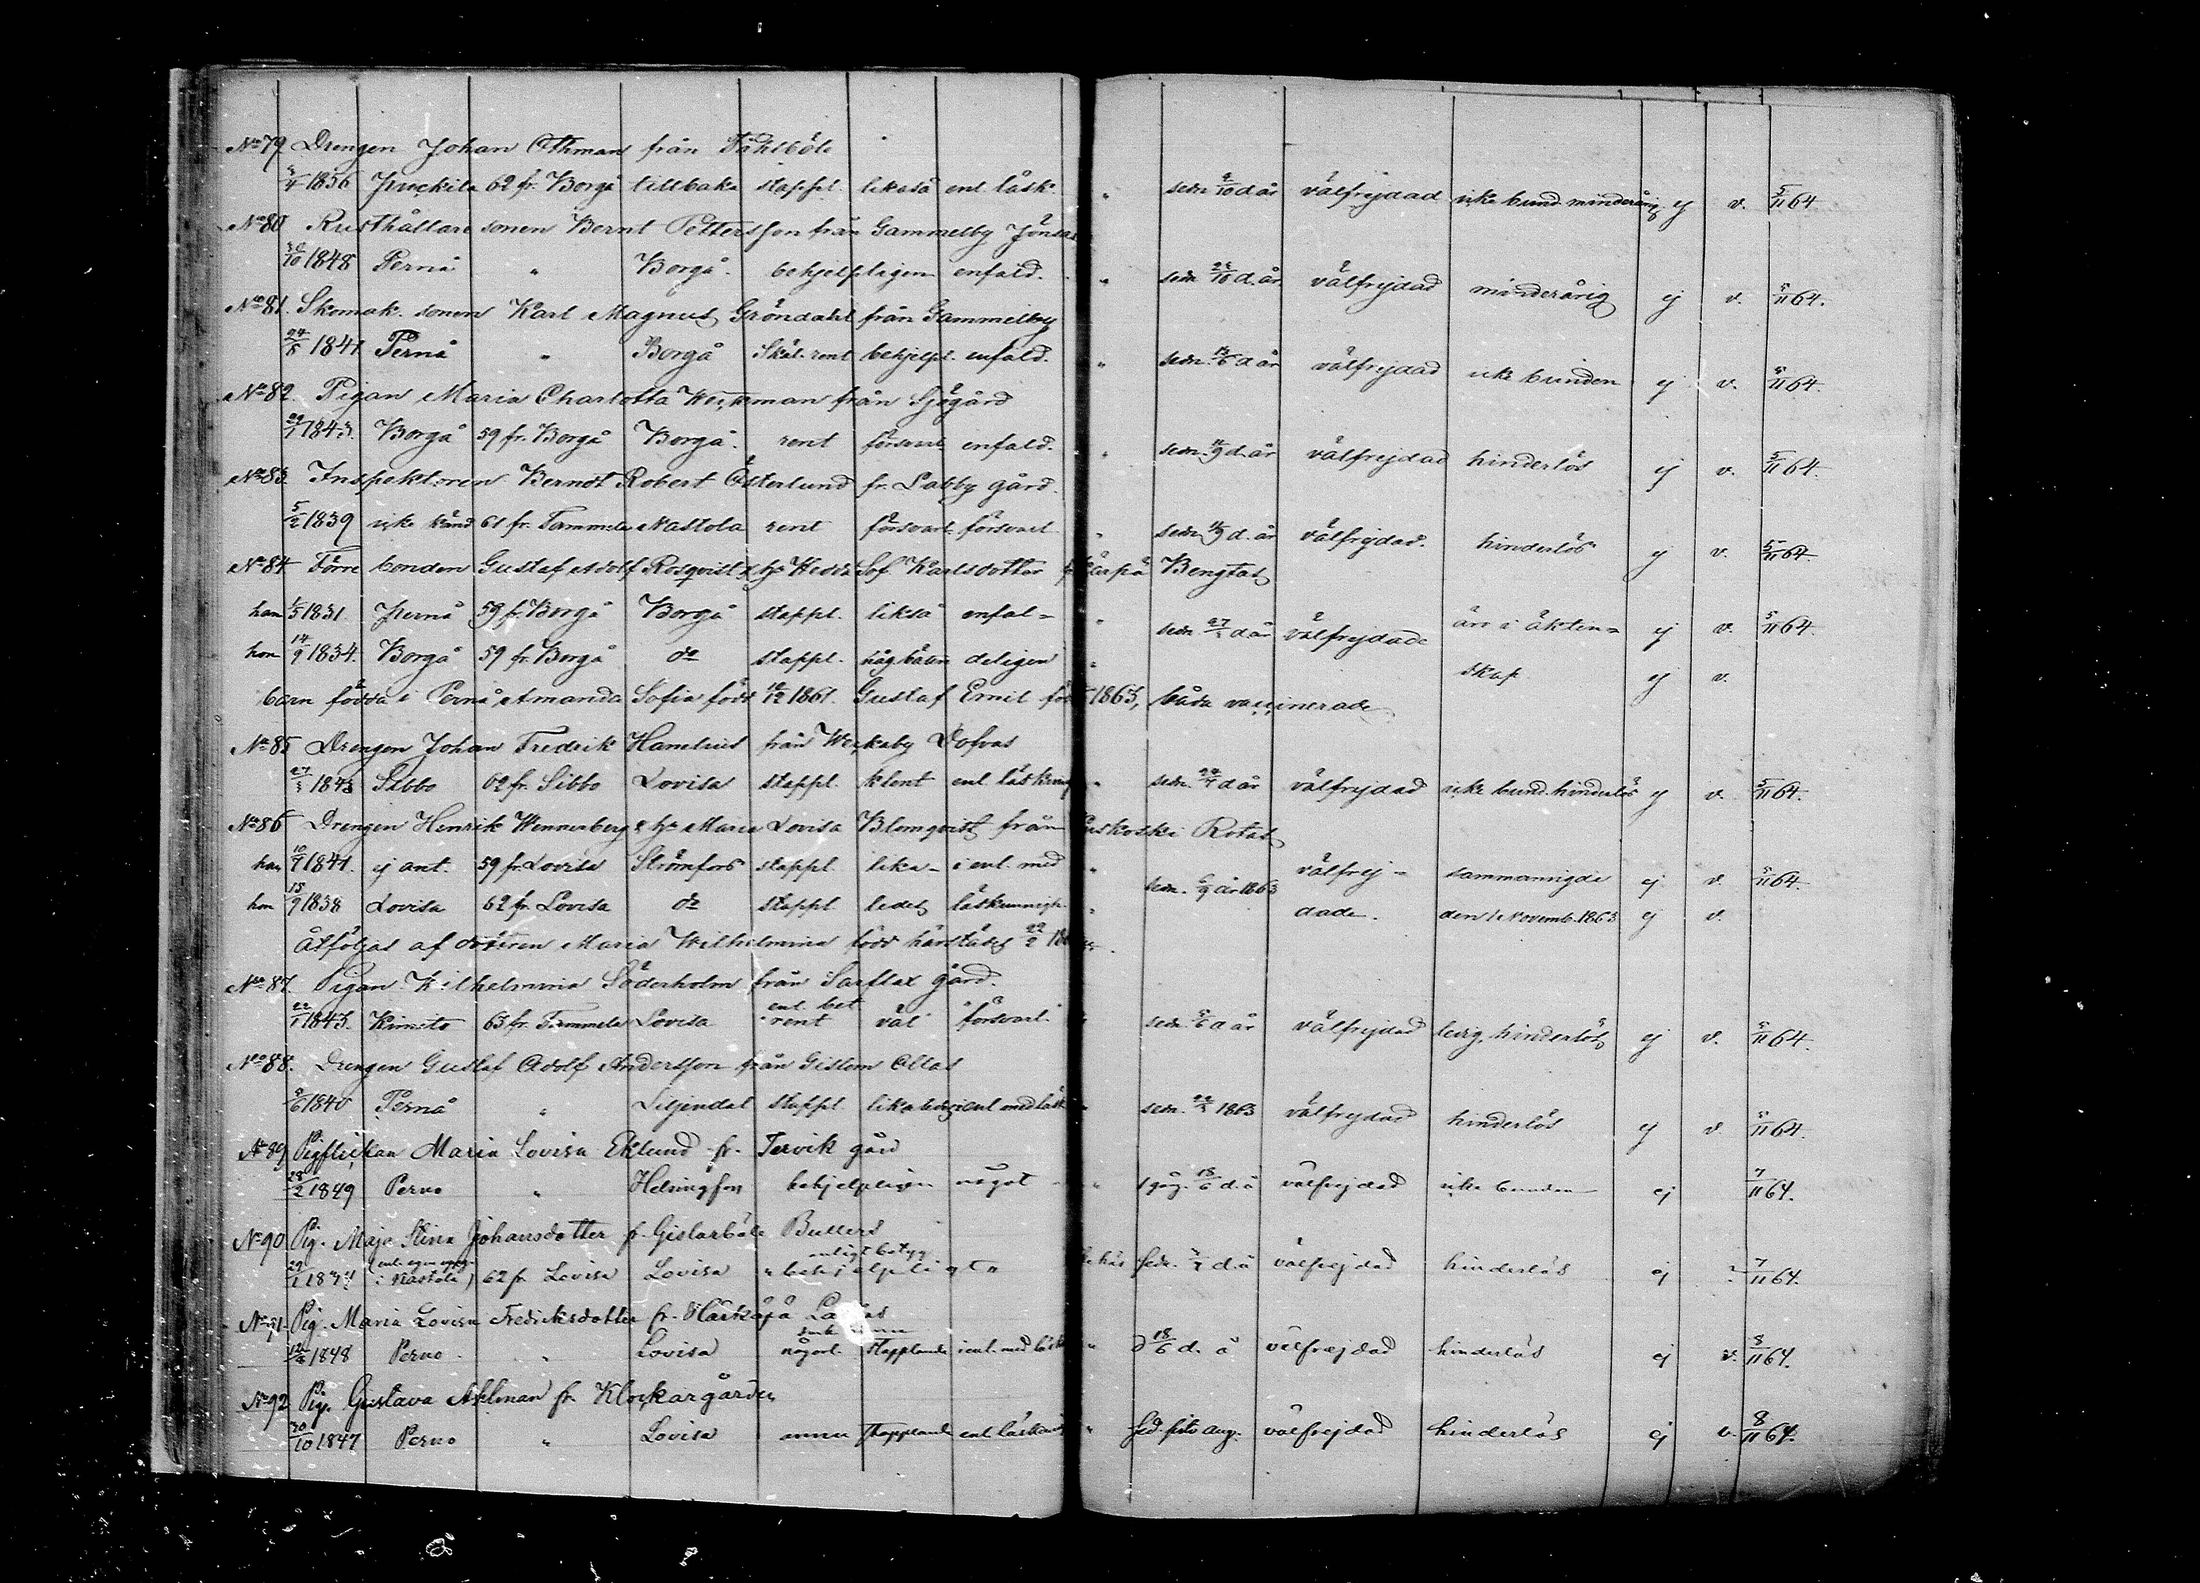 No 79 Drengen Johan Öhman från Tåhlböle
1856 62 fr. Borgå tillbaka stappl. likaså enl. läsk. " sedn. d. år välfrejdad icke bund. minderårig ej v. 5/11 64
No 80 Rusthållare sonen Bernt Pettersson från Gammelby Jönsas
1848 Pernå " Borgå. behjelpligen enfald. " sedn. d. år välfrejdad minderårig ej v. 5/11 64.
No 81. Skomak. sonen Karl Magnus Gröndahl från Gammelby
24/8 1841 Pernå " Borgå Skäl. rent behjelpl. enfald. " sedn. d. år välfrejdad icke bunden ej v. 5/11 64.
No 82. Pigan Maria Charlotta från Sjögård
1843. Borgå 59 fr. Borgå Borgå. rent försvarl. enfald. " sedn. d. år välfrejdad hinderlös ej v. 5/11 64.
No 83. Inspektoren Berndt Robert Österlund fr. Labby gård.
5/2 1839 icke känd 61 fr. Tammela Nastola rent försvarl. försvarl. " sedn. d. år välfrejdad. hinderlös ej v. 5/11 64.
No 84 Förre bonden Gustaf Adolf Rosqvist & hs Hedda Sof. Karlsdotter fr. Bengtas
han 1/5 1831. Pernå 59 fr. Borgå Borgå stappl. likså enfal= " sedn. d. år välfrejdade äro i äkten= ej v. 5/11 64.
hon 14/9 1834. Borgå 59 fr. Borgå do stappl. någ bättre deligen " skap ej v.
barn födda i Pernå Amanda Sofia född 10/12 1861. Gustaf Emil född 1863, båda vaccinerade
No 85 Drengen Johan Fredrik Hamelius från Werkaby Dofvas
1843 Sibbo 62 fr. Sibbo Lovisa stappl. klent enl. läskunnigh. " sedn. d. år välfrejdad icke bund. hinderlös ej v. 5/11 64.
No 86 Drengen Henrik Wennerberg & hs Maria Lovisa Blomqvist från Kuskoski Rotas
han 10/9 1841. ej ant. 59 fr. Lovisa Strömfors stappl. lika- i enl. med " sedn. år 1863 välfrej- sammanvigde ej v. 5/11 64.
hon 15/9 1838 Lovisa 62 fr. Lovisa do stappl. ledes läskunnigh. " dade. den 1 Novemb. 1863 ej v.
åtföljas af dottren Maria Wilhelmina född härstädes 22/2
No 87. Pigan Wilhelmina Söderholm från Sarflax gård.
enl. bet
22/1 1843. Kimito 63 fr. Tammela Lovisa "rent väl försvarl." " sedn. d. år välfrejdad ledig, hinderlös ej v. 5/11 64.
No 88. Drengen Gustaf Adolf Andersson från Gislom Ollas
1840 Pernå " Liljendal stappl. likaledes i enl. med läsk. " sedn. 1863 välfrejdad hinderlös ej v. 5/11 64.
No 89 Pigflickan Maria Lovisa Eklund fr. Tervik gård
28/2 1849 Perno " Helsingfors behjelpligen något " 1 gång. 18/6 d. å välfrejdad icke bunden ej 7/11 64.
No 90 Pig. Maja Stina Johansdotter fr. Gislarböle Bullers
enligt betyg
29/1 i Nastola) 62 fr. Lovisa Lovisa "behjelpligt" här sedn. d. å välfrejdad hinderlös ej ? 7/11 64.
No 91. Pig. Maria Lovisa Fredriksdotter fr. Härkäpä
1848 Perno " Lovisa någorl. stapplande i enl. med läsk. " 18/6 d. å välfrejdad hinderlös ej v. 8/11 64.
No 92 Pig. Gustava Ahlman fr. Klockargården
30/10 1847 Perno " Lovisa stapplande enl. läskun. " sed. sistl. Aug. välfrejdad hinderlös ej v. 8/11 64.